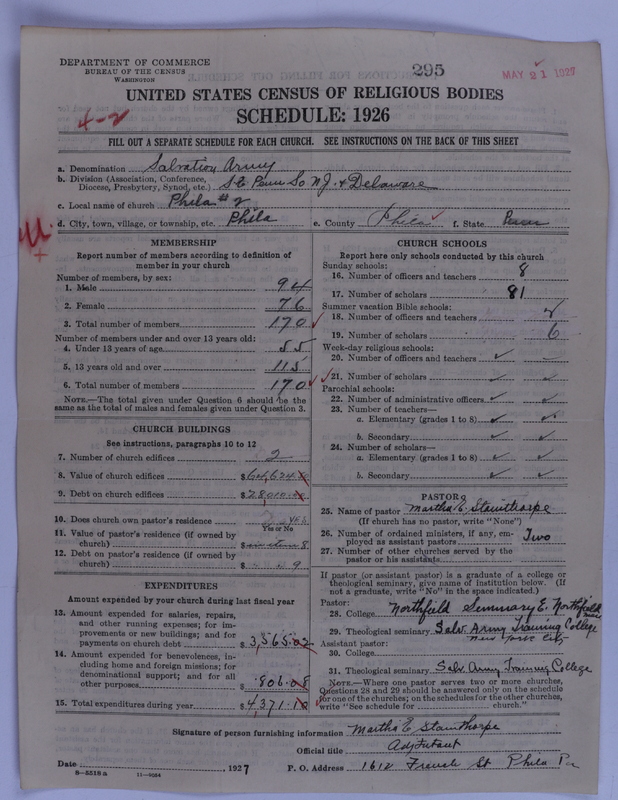 DEPARTMENT OF COMMERCE
BUREAU OF THE CENSUS
WASHINGTON
295
MAY 21 1927
UNITED STATES CENSUS OF RELIGIOUS BODIES
SCHEDULE: 1926
4-2
FILL OUT A SEPARATE SCHEDULE FOR EACH CHURCH. SEE INSTRUCTIONS ON THE BACK OF THIS SHEET
a. Denomination Salvation Army
b. Division (Association, Conference, Diocese, Presbytery, Synod, etc.) Penn So NJ. & Delaware
c. Local name of church Phila #2
d. City, town, village, or township, etc. Phila e. County Phila f. State
MEMBERSHIP
Report number of members according to definition of
member in your church
Number of members, by sex:
1. Male 94
2. Female 76
3. Total number of members 170
Number of members under and over 13 years old:
4. Under 13 years of age 55
5. 13 years old and over 115
6. Total number of members 170
NOTE.—The total given under Question 6 should be the
same as the total of males and females given under Question 3.
CHURCH BUILDINGS
See instructions, paragraphs 10 to 12
7. Number of church edifices 2
8. Value of church edifices $
9. Debt on church edifices $
10. Does church own pastor's residence
Yes or No
11. Value of pastor's residence (if owned by
church) $
12. Debt on pastor's residence (if owned by
church) $
EXPENDITURES
Amount expended by your church during last fiscal year
13. Amount expended for salaries, repairs,
and other running expenses; for im-
provements or new buildings; and for
payments on church debt $3,565.02
14. Amount expended for benevolences, in-
cluding home and foreign missions; for
denominational support; and for all
other purposes $806.08
15. Total expenditures during year $4,371.10
CHURCH SCHOOLS
Report here only schools conducted by this church
Sunday schools:
16. Number of officers and teachers 8
17. Number of scholars 81
Summer vacation Bible schools:
18. Number of officers and teachers
19. Number of scholars 6
Week-day religious schools:
20. Number of officers and teachers
21. Number of scholars
Parochial schools:
22. Number of administrative officers
23. Number of teachers—
a. Elementary (grades 1 to 8)
b. Secondary
24. Number of scholars—
a. Elementary (grades 1 to 8)
b. Secondary
PASTOR
25. Name of pastor Martha E. Stainthorpe
(If church has no pastor, write "None")
26. Number of ordained ministers, if any, em-
ployed as assistant pastors Two
27. Number of other churches served by the
pastor or his assistants
If pastor (or assistant pastor) is a graduate of a college or
theological seminary, give name of institution below. (If
not a graduate, write "No" in the space indicated.)
Pastor:
28. College Northfield Seminary E. Northfield Mass
29. Theological seminary Salv. Army Training College
New York City
Assistant pastor:
30. College
31. Theological seminary Salv Army Training College
NOTE.—Where one pastor serves two or more churches,
Questions 28 and 29 should be answered only on the schedule
for one of the churches; on the schedules for the other churches,
write "See schedule for church."
Signature of person furnishing information Martha E Stainthorpe
Official title Adjutant
Date 1927 P. O. Address 1612 French St Phila Pa
8-5518a 11-9084